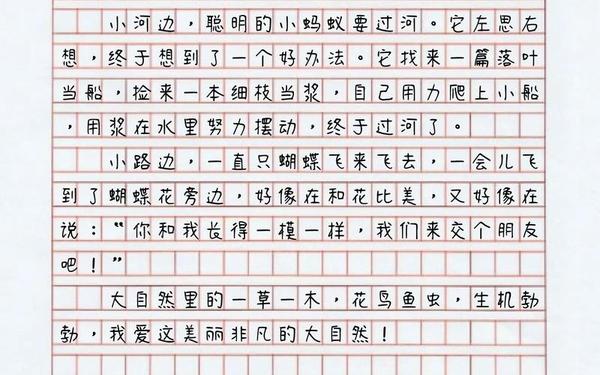 小河边，聪明的小蚂蚁要过河。它左思右
想，终于想到了一个好办法。它找来一篇落叶
当船，捡来一本细枝当浆，自己用力爬上小船
，用浆在水里努力摆动，终于过河了。
小路边，一直只蝴蝶飞来飞去，一会儿飞
到了蝴蝶花旁边，好像在和花比美，又好像在
说：“你和我长得一模一样，我们来交个朋友
吧！”
大自然里的一草一木，花鸟鱼虫，生机勃
勃，我爱这美丽非凡的大自然！